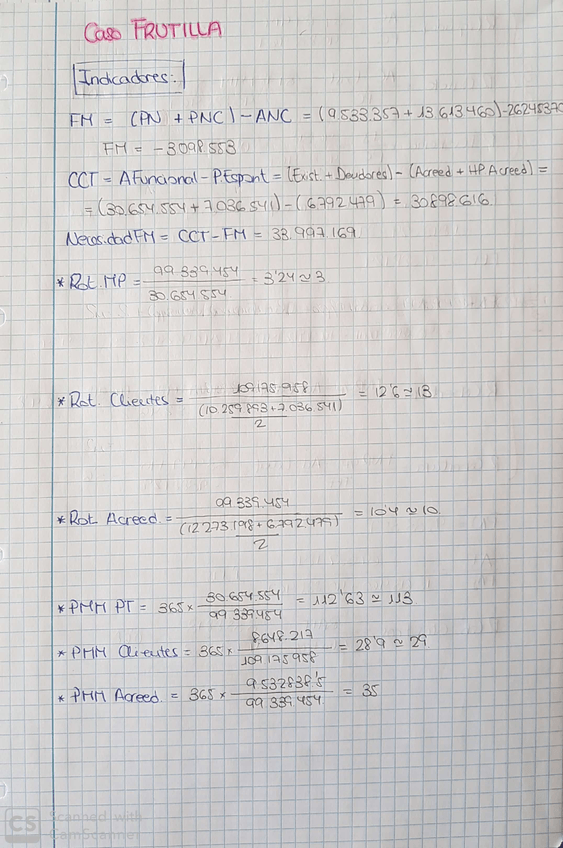 Caso FRUTILLA
Indicadores:
FM = (PN + PNC) - ANC = (9.533.357 + 13.613.460) - 26245370
FM = -3098553
CCT = AFuncional - P.Espont = (Exist. + Deudores) - (Acreed + HP Acreed) =
= (30.654.554 + 7.036.541) - (6792479) = 30898616.
Necesidad FM = CCT - FM = 33.997.169.
* Rot. MP = 99.339.454 / 30.654.554 = 3'24 ≃ 3
* Rot. Clientes = 109.175.958 / ((10.259.893 + 7.036.541) / 2) = 12'6 ≃ 13
* Rot Acreed = 99.339.454 / ((12.273.198 + 6.792.479) / 2) = 10'4 ≃ 10
* PMM PT = 365 x 30.654.554 / 99.339454 = 112'63 ≃ 113
* PMM Clientes = 365 x 8.648.217 / 109.175.958 = 28'9 ≃ 29
* PMM Acreed. = 365 x 9.532838'5 / 99.339.454 = 35
CS Scanned with
CamScanner